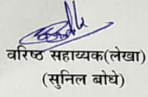 वरिष्ठ सहाय्यक(लेखा)
(सुनिल बोधे)